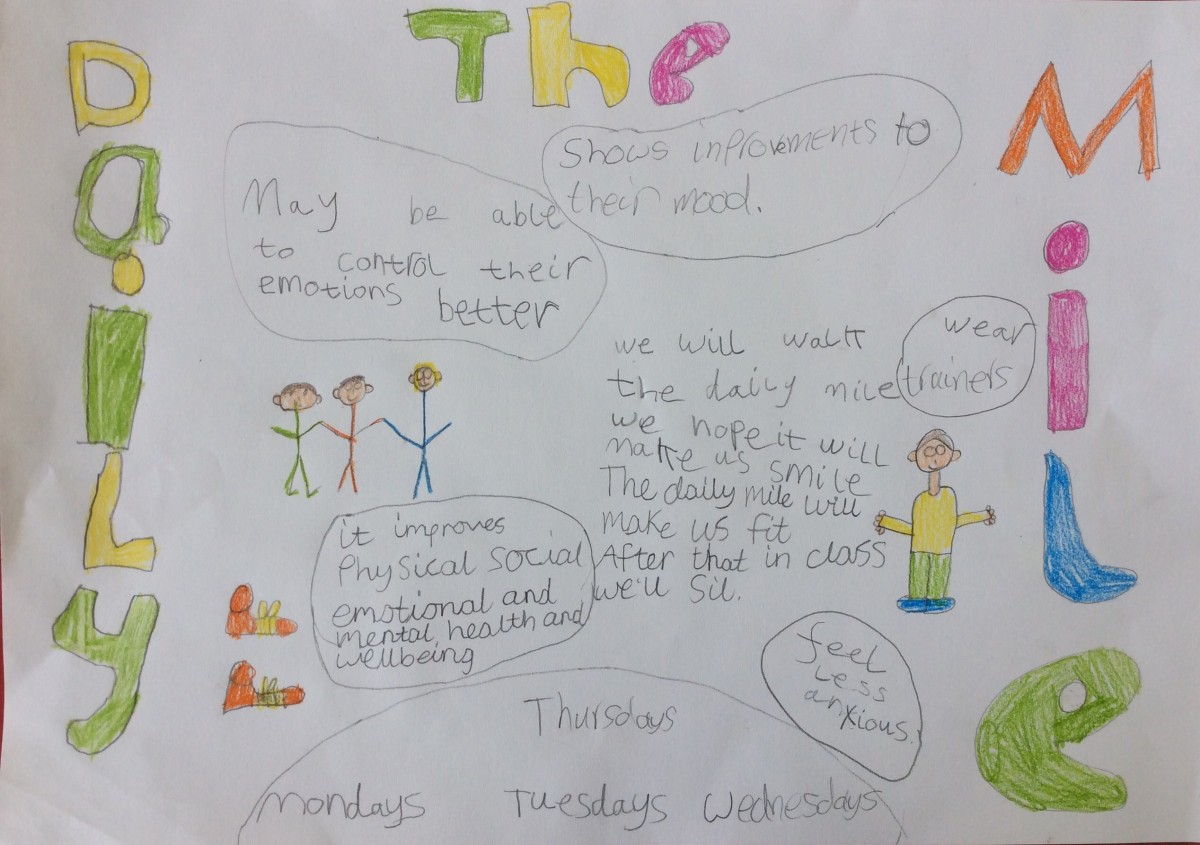 The
Daily
MiLe
Shows inprovements to
their mood.
May be able
to control their
emotions better
wear
trainers
we will walk
the daily mile
we hope it will
make us smile
The daily mile will
make us fit
After that in class
we'll Sit.
it improves
Physical social
emotional and
mental health and
wellbeing
feel
Less
anxious.
Thursdays
Mondays Tuesdays Wednesdays